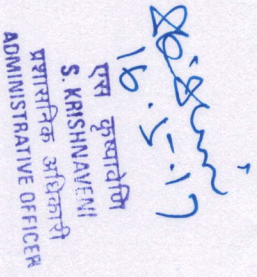 16.5.17
एस कृष्णवेणि
S. KRISHNAVENI
प्रशासनिक अधिकारी
ADMINISTRATIVE OFFICER